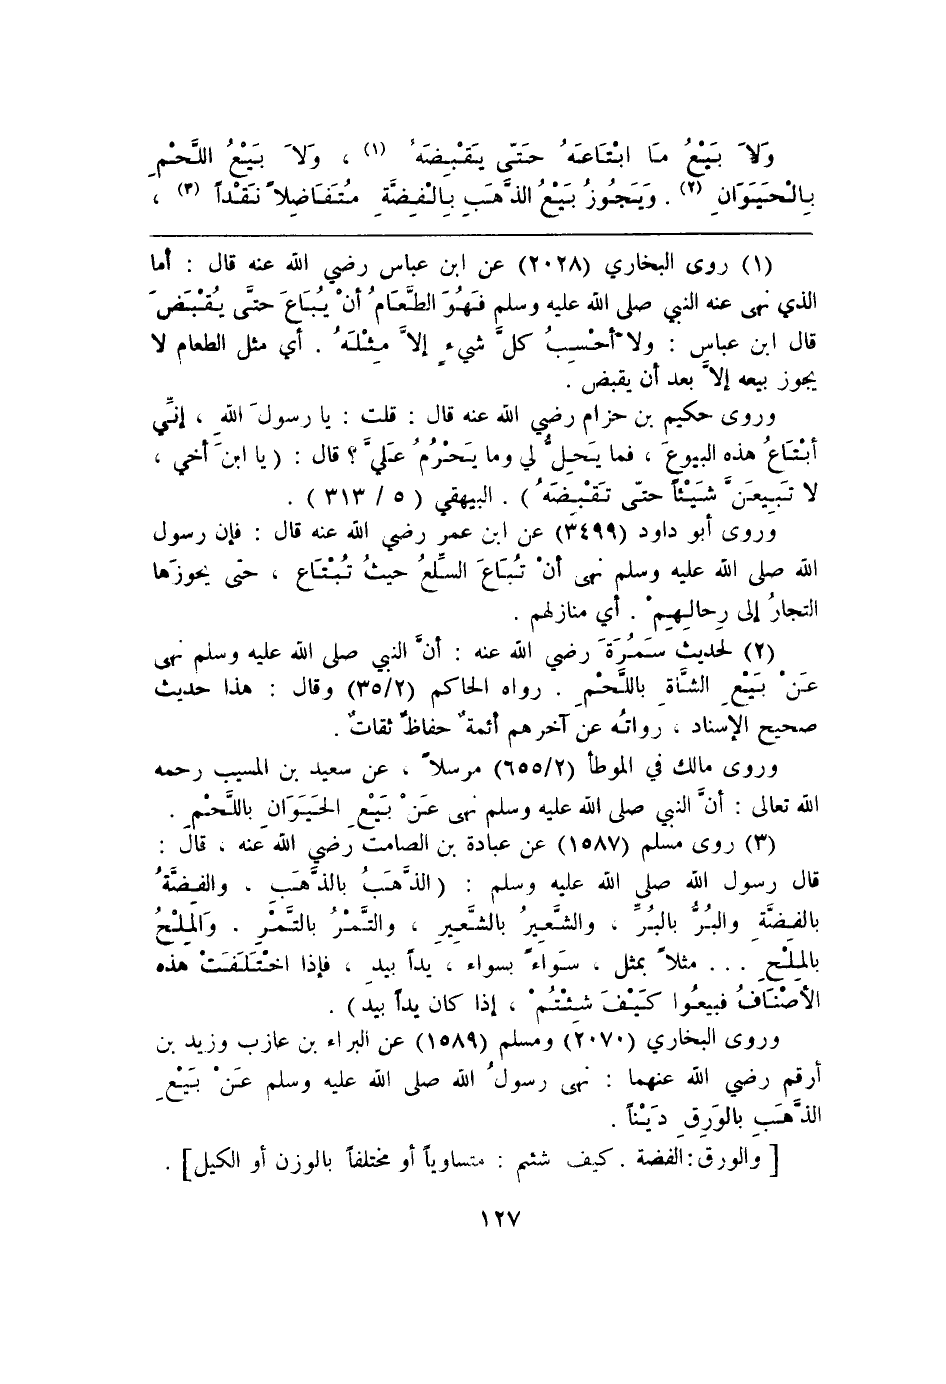 وَلاَ بَيْعُ مَا ابْتَاعَهُ حَتّى يَقْبِضَهُ (١) ، وَلاَ بَيْعُ اللَّحْمِ
بِالْحَيَوَانِ (٢) . وَيَجُوزُ بَيْعُ الذَّهَبِ بِالْفِضَّةِ مُتَفَاضِلاً نَقْداً (٣) ،
(١) روى البخاري (٢٠٢٨) عن ابن عباس رضي الله عنه قال : أما
الذي نهى عنه النبي صلى الله عليه وسلم فَهُوَ الطَّعَامُ أنْ يُبَاعَ حتىَّ يُقْبَضَ
قال ابن عباس : ولا أحْسِبُ كلَّ شيءٍ إلاَّ مِثْلَهُ . أي مثل الطعام لا
يجوز بيعه إلاَّ بعد أن يقبض .
وروى حكيم بن حزام رضي الله عنه قال : قلت : يا رسولَ اللهِ ، إنّيِ
أبْتَاعُ هذه البيوعَ ، فما يَحِلُّ لي وما يَحْرُمُ عَليَّ ؟ قال : ( يا ابنَ أخي ،
لا تَبِيعَنَّ شَيْئاً حتّى تَقْبِضَهُ ) . البيهقي ( ٥ / ٣١٣ ) .
وروى أبو داود (٣٤٩٩) عن ابن عمر رضي الله عنه قال : فإن رسول
الله صلى الله عليه وسلم نهى أنْ تُبَاعَ السِّلعُ حيثُ تُبْتَاع ، حتّى يحوزَها
التجارُ إلى رِحالِهِمْ . أي منازلهم .
(٢) لحديث سَمُرَةَ رضي الله عنه : أنَّ النبي صلى الله عليه وسلم نهى
عَنْ بَيْعِ الشَّاة بِاللَّحْمِ . رواه الحاكم (٣٥/٢) وقال : هذا حديث
صحيح الإسناد ، رواتُه عن آخرهم أئمةٌ حفاظٌ ثقاتٌ .
وروى مالك في الموطأ (٦٥٥/٢) مرسلاً ، عن سعيد بن المسيب رحمه
الله تعالى : أنَّ النبي صلى الله عليه وسلم نهى عَنْ بَيْعِ الحَيَوَانِ باللَّحْمِ .
(٣) روى مسلم (١٥٨٧) عن عبادة بن الصامت رضي الله عنه ، قال :
قال رسول الله صلى الله عليه وسلم : ( الذَّهَبُ بالذَّهَبِ . والفِضَّةُ
بالفِضَّةِ والبُرُّ بالبُرِّ ، والشَّعِيرُ بالشَّعِيرِ ، والتَّمْرُ بالتَّمْرِ . وَالمِلْحُ
بالمِلْحِ . . . مثلاً بمثل ، سَواءً بسواء ، يداً بيدِ ، فإذا اخْتَلَفَتْ هذه
الأصْنَافُ فبيعُوا كَيْفَ شِئْتُمْ ، إذا كان يداً بيدِ ) .
وروى البخاري (٢٠٧٠) ومسلم (١٥٨٩) عن البراء بن عازب وزيد بن
أرقم رضي الله عنهما : نهى رسولُ الله صلى الله عليه وسلم عَنْ بَيْعِ
الذَّهَبِ بالوَرِقِ دَيْناً .
[ والورق : الفضة . كيف شئتم : متساوياً أو مختلفاً بالوزن أو الكيل] .
١٢٧